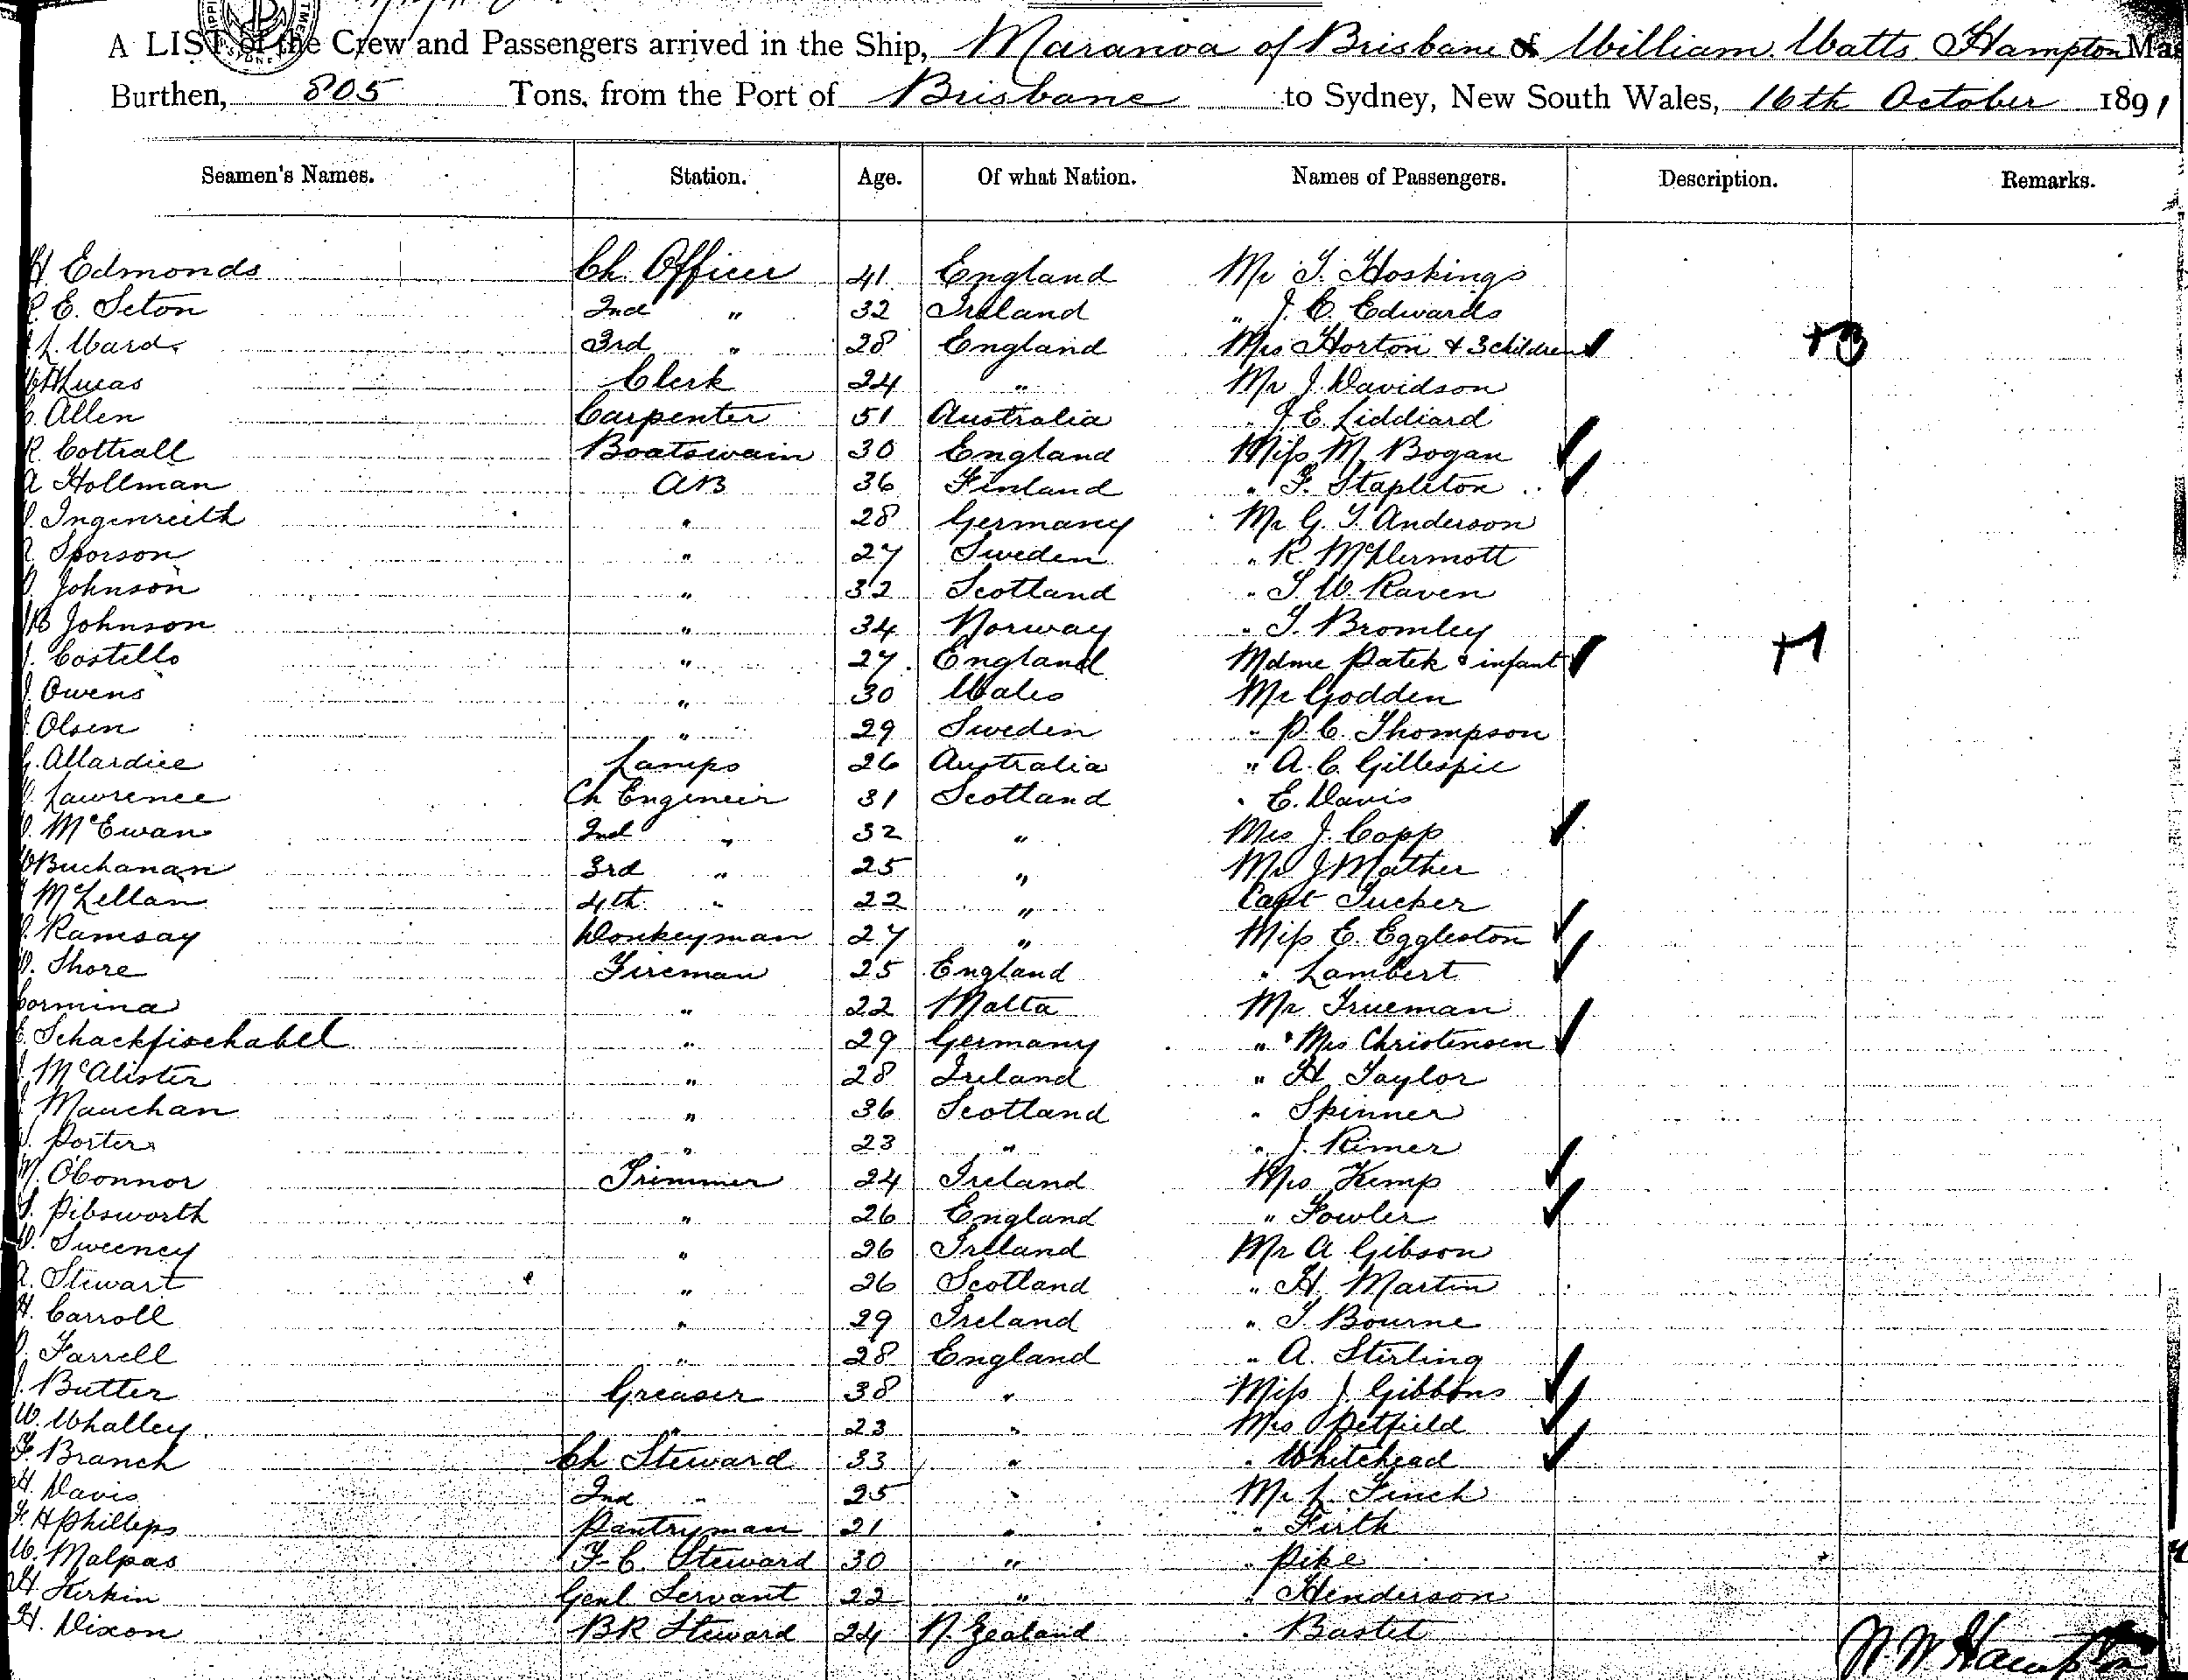 A LIST of the Crew and Passengers arrived in the Ship, Maranoa of Brisbane of William Watts Hampton Mas
Burthen, 805 Tons, from the Port of Brisbane to Sydney, New South Wales, 16th October 1891
Seamen's Names. Station. Age. Of what Nation. Names of Passengers. Description. Remarks.
H Edmonds Ch. Officer 41 England Mr T. Hoskings
E. Seton 2nd " 32 Ireland " J. C. Edwards
L. Ward 3rd " 28 England Mrs Horton & 3 children +3
Lucas Clerk 24 " Mr J. Davidson
Allen Carpenter 51 Australia " J. E. Liddiard
R. Cottrall Boatswain 30 England Miss M. Bogan
A Hollman AB 36 Finland " F. Stapleton
Ingenreith " 28 Germany Mr G. T. Anderson
Sporson " 27 Sweden " R. McDermott
Johnson " 32 Scotland " T. W. Raven
B Johnson " 34 Norway " T. Bromley
J. Costello " 27 England Mdme Patek & infant +1
Owens " 30 Wales Mr Godden
Olsen " 29 Sweden " P. C. Thompson
G. Allardice Lamps 26 Australia " A. C. Gillespie
Lawrence Ch Engineer 31 Scotland " E. Davis
McEwan 2nd " 32 " Mrs J. Copp
Buchanan 3rd " 25 " Mr J Mather
McLellan 4th " 22 " Capt Tucker
Ramsay Donkeyman 27 " Miss E. Eggleston
Shore Fireman 25 England " Lambert
Cormina " 22 Malta Mr Trueman
E. Schackfischabel " 29 Germany " & Mrs Christensen
McAlister " 28 Ireland " H. Taylor
Mauchan " 36 Scotland " Skinner
Porter " 23 " " J. Rimer
M. O'Connor Trimmer 24 Ireland Mrs Kemp
S. Pibsworth " 26 England " Fowler
Sweeney " 26 Ireland Mr A Gibson
A. Stewart " 26 Scotland " H. Martin
H. Carroll " 29 Ireland " T. Bourne
Farrell " 28 England " A. Stirling
J. Butter Greaser 38 " Miss J. Gibbons
W. Whalley " 23 " Mrs Petfield
F. Branch Ch Steward 33 " " Whitehead
H. Davis 2nd " 25 " Mr L. Finch
F. H Phillips Pantryman 21 " " Firth
W. Malpas F. C. Steward 30 " " Pike
H. Kirkin Genl Servant 22 " " Henderson
H. Dixon BR Steward 24 N. Zealand " Bastet
W. W Hampton